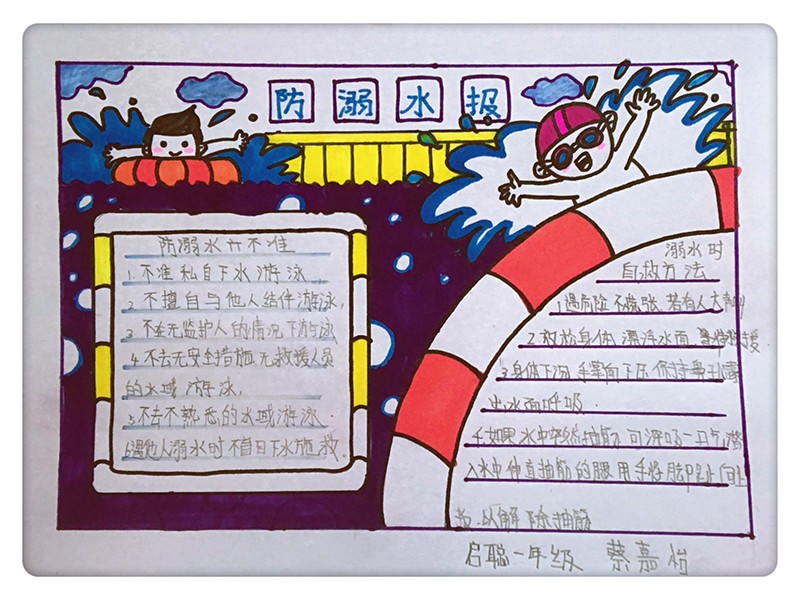 防溺水报
防溺水六不准
1.不准私自下水游泳
2.不擅自与他人结伴游泳,
3.不在无监护人的情况下游泳
4.不去无安全措施无救援人员
的水域游泳,
5.不去不熟悉的水域游泳.
6遇他人溺水时不盲目下水施救.
溺水时
自救方法
1遇危险不慌张,若有人大声
2放松身体,漂浮水面,等待救援.
3.身体下沉,手掌向下压
出水面呼吸.
4如果水中突然抽筋,可深吸一口气潜
入水中伸直抽筋的腿用手将脚趾向上
以解除抽筋
启聪一年级 蔡嘉怡